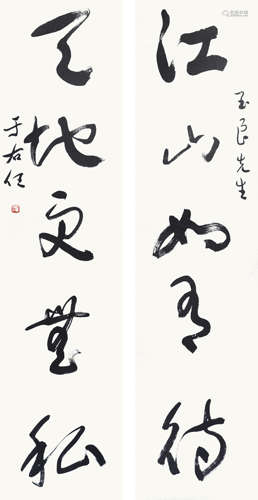 玉良先生
江山如有待
天地更無私
于右任